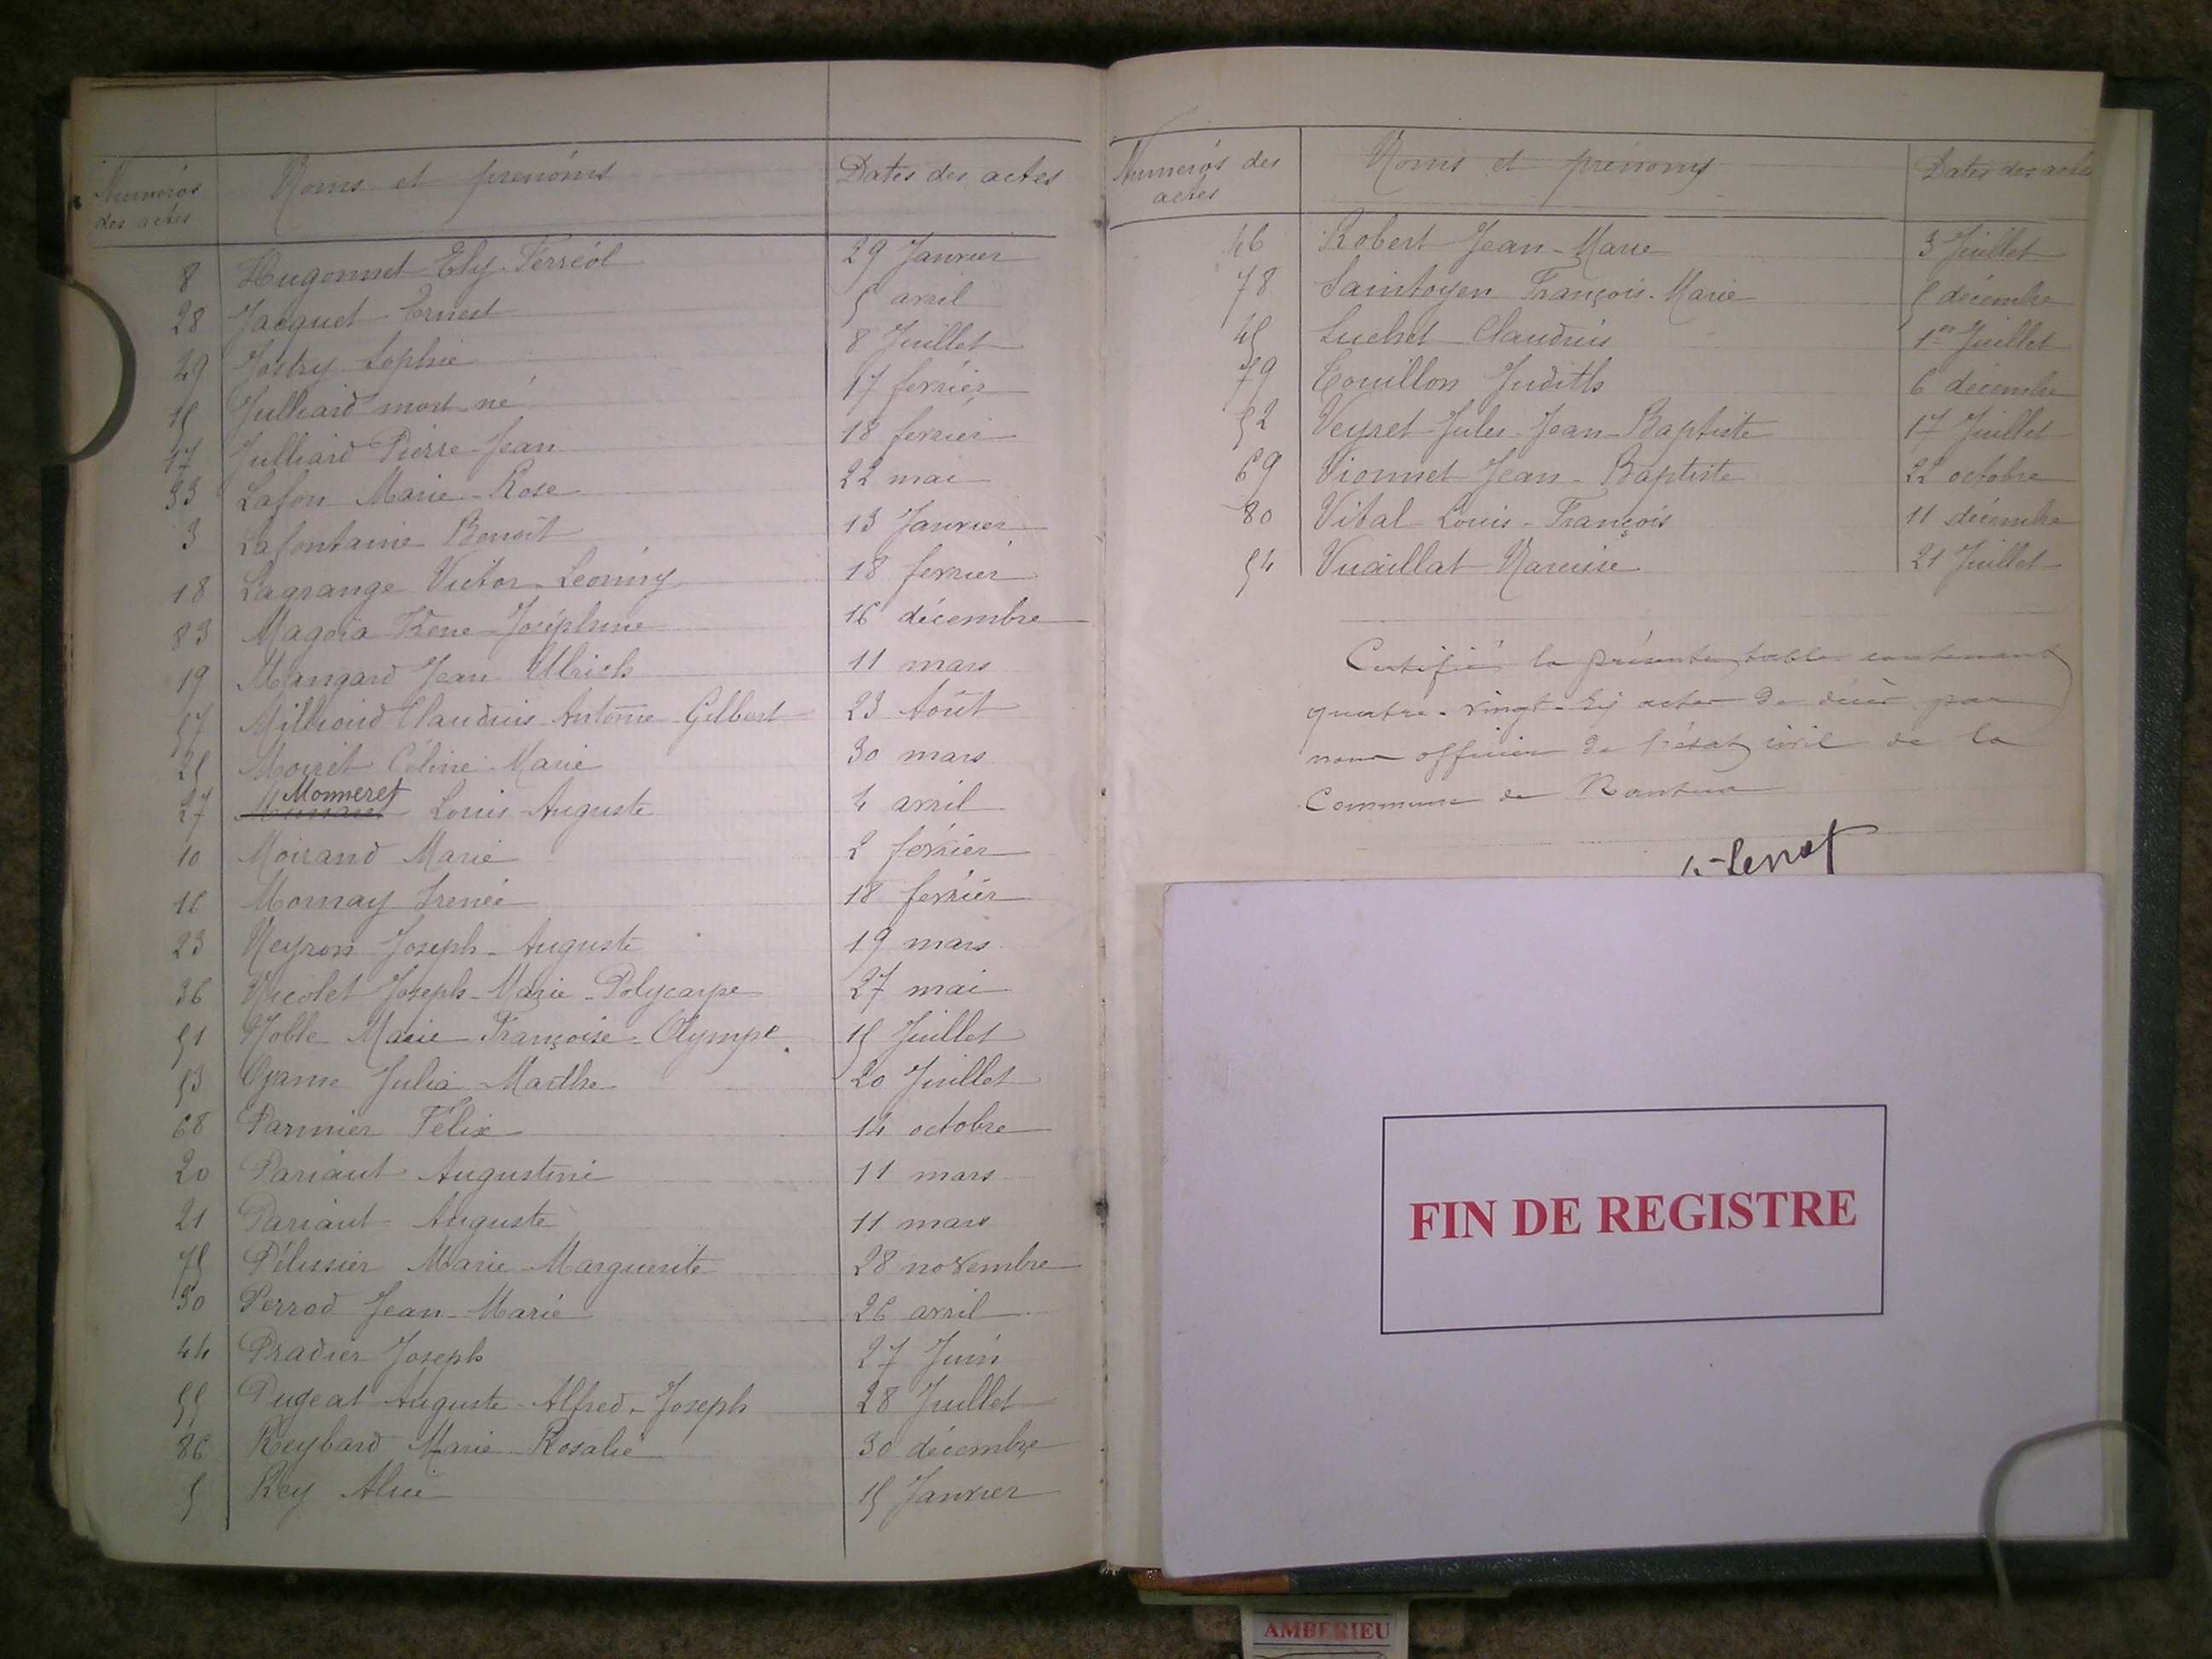 Numéros des actes Noms et prénoms Dates des actes
8 Hugonnet Ely-Ferréol 29 Janvier
28 Jacquet Ernest 5 avril
49 Jostry Sophie 8 Juillet
15 Julliard mort né 17 février
17 Julliard Pierre-Jean 18 février
33 Lafon Marie-Rose 22 mai
3 Lafontaine Benoît 13 Janvier
18 Lagrange Victor-Léonny 18 février
83 Magoïa Irène-Joséphine 16 décembre
19 Mangard Jean Ulrich 11 mars
57 Milliand Claudius Antoine Gilbert 23 Août
25 Moiret Céline-Marie 30 mars
Monneret
27 Louis-Auguste 4 avril
10 Moirand Marie 2 février
16 Mornay Irénée 18 février
23 Neyron Joseph-Auguste 19 mars
36 Nicolet Joseph-Marie-Polycarpe 27 mai
51 Noble Marie-Françoise-Olympe 15 Juillet
53 Oyarne Julia-Marthe 20 Juillet
68 Parmier Félix 14 octobre
20 Pariaut Augustine 11 mars
21 Pariaut Auguste 11 mars
75 Pélissier Marie-Marguerite 28 novembre
30 Perrod Jean-Marie 26 avril
44 Pradier Joseph 27 Juin
55 Pugeat Auguste-Alfred-Joseph 28 Juillet
86 Reybard Marie-Rosalie 30 décembre
5 Rey Alice 15 Janvier
Numéros des actes Noms et prénoms Dates des actes
46 Robert Jean-Marie 3 Juillet
78 Saintoyen François-Marie 5 décembre
45 Suchet Claudius 1er Juillet
79 Touillon Judith 6 décembre
52 Veyret Jules-Jean-Baptiste 17 Juillet
69 Vionnet Jean-Baptiste 22 octobre
80 Vital Louis-François 11 décembre
54 Vuaillat Narcisse 21 Juillet
Certifié la présente table contenant
quatre-vingt-six actes de décès par
nous officier de l'état civil de la
Commune de Nantua
FIN DE REGISTRE
AMBERIEU